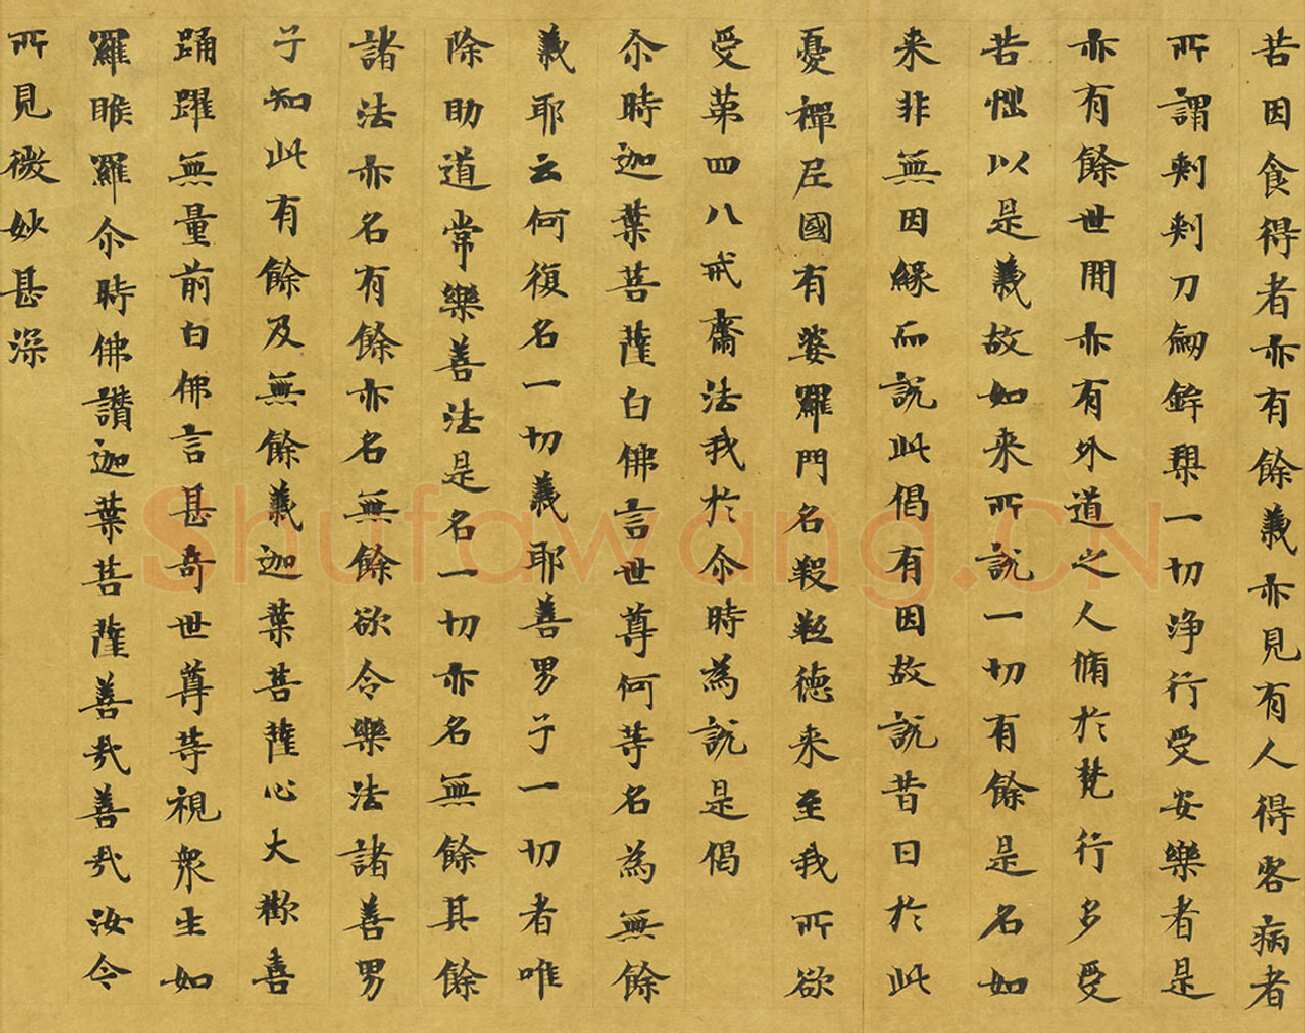 苦因食得者亦有餘義亦見有人得客病者
所謂刾刾刀劒鉾槊一切淨行受安樂者是
亦有餘世間亦有外道之人脩於梵行多受
苦惱以是義故如来所說一切有餘是名如
来非無因緣而說此偈有因故說昔日於此
憂禪尼國有婆羅門名羖羝德来至我所欲
受苐四八戒齋法我於尒時為說是偈
尒時迦葉菩薩白佛言世尊何等名為無餘
義耶云何復名一切義耶善男子一切者唯
除助道常樂善法是名一切亦名無餘其餘
諸法亦名有餘亦名無餘欲令樂法諸善男
子知此有餘及無餘義迦葉菩薩心大歡喜
踊躍無量前白佛言甚奇世尊等視眾生如
羅睺羅尒時佛讚迦葉菩薩善哉善哉汝今
所見微妙甚深
Shufawang.CN